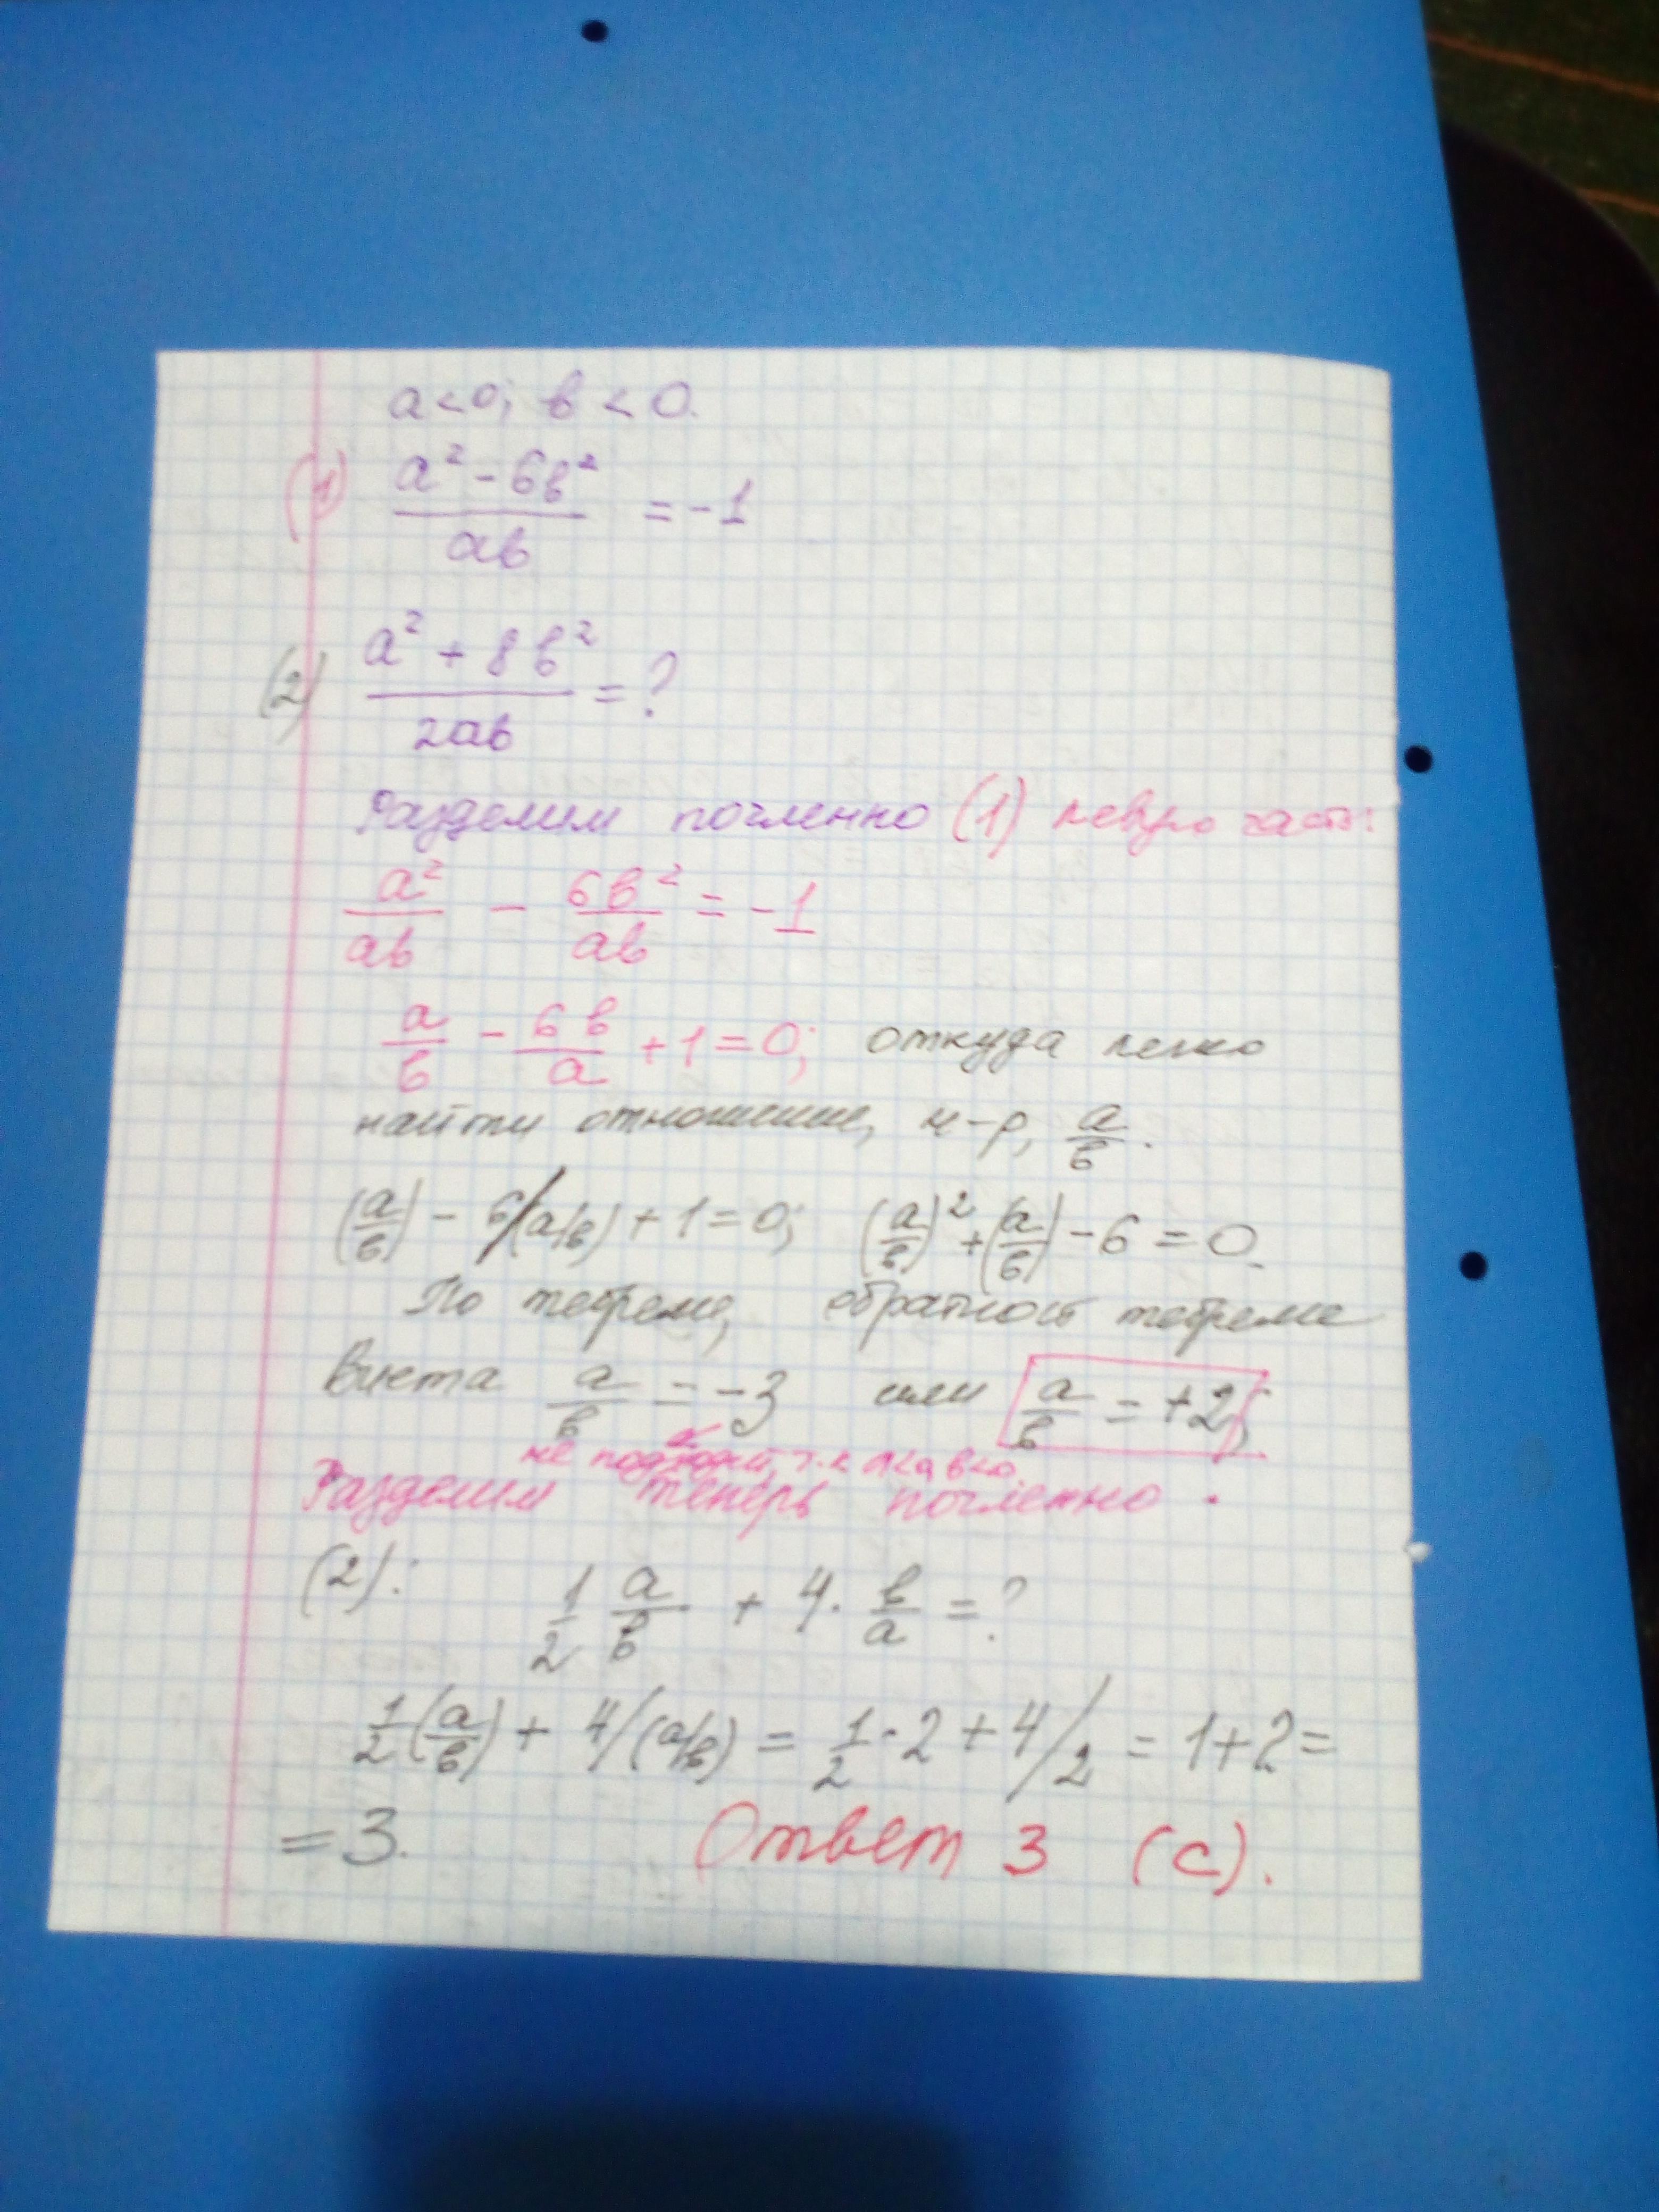 a<0; в < 0.
(1) a² - 6в² / aв = -1
(2) a² + 8в² / 2aв = ?
Разделим почленно (1) левую часть:
a²/aв - 6в²/aв = -1
a/в - 6в/a + 1 = 0; откуда легко
найти отношение, н-р, a/в.
(a/в) - 6/(a/в) + 1 = 0; (a/в)² + (a/в) - 6 = 0.
По теореме, обратной теореме
Виета a/в = -3 или a/в = +2;
не подходит, т.к a<0, в<0.
Разделим теперь почленно
(2): 1/2 a/в + 4 · в/a = ?
1/2 (a/в) + 4/(a/в) = 1/2 · 2 + 4/2 = 1+2 =
= 3. Ответ 3 (с).